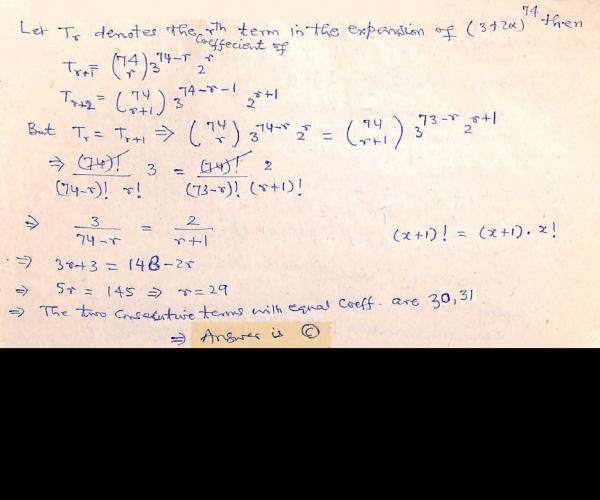 Let Tr denotes the rth term in the expansion of (3+2x)^74 then
coeffecient of
T_{r+1} = (74 r) 3^{74-r} 2^r
T_{r+2} = (74 r+1) 3^{74-r-1} 2^{r+1}
But T_r = T_{r+1} ⇒ (74 r) 3^{74-r} 2^r = (74 r+1) 3^{73-r} 2^{r+1}
⇒ (74)! / (74-r)! r! 3 = (74)! / (73-r)! (r+1)! 2
⇒ 3 / 74-r = 2 / r+1 (x+1)! = (x+1). x!
⇒ 3r+3 = 148-2r
⇒ 5r = 145 ⇒ r = 29
⇒ The two consecutive terms with equal coeff. are 30, 31
⇒ Answer is Ⓒ